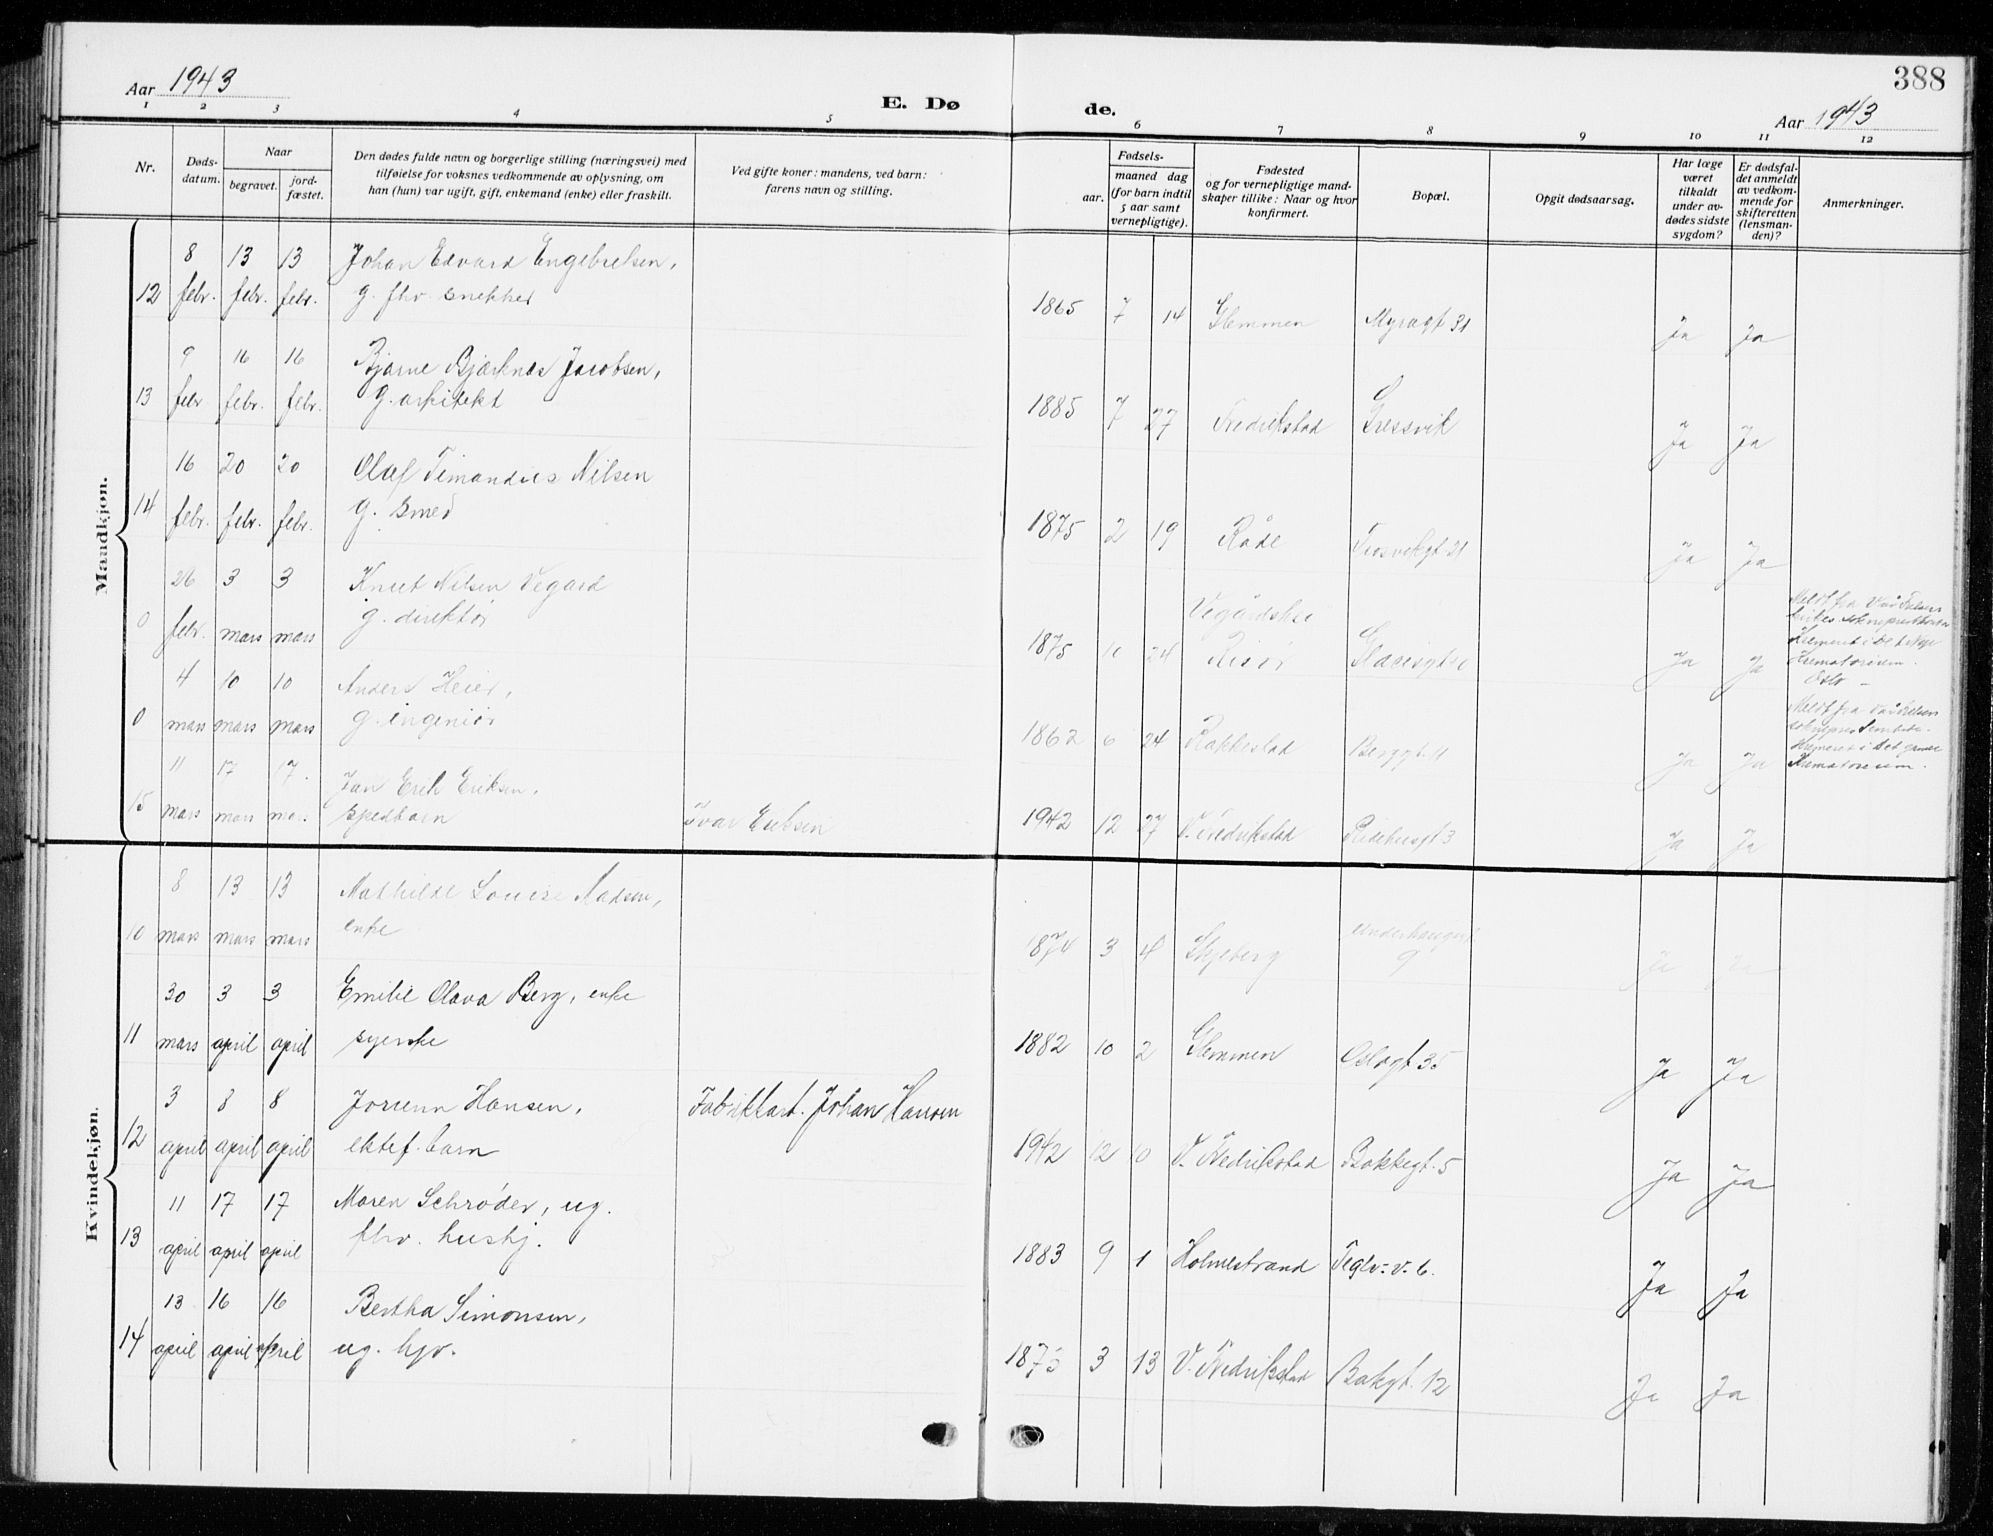 388
Aar 1943
E. Dø de.
Aar 1943
1 2 3 4 5 6 7 8 9 10 11 12
Nr.
Døds-
datum.
Naar
begravet.
jord-
fæstet.
Den dødes fulde navn og borgerlige stilling (næringsvei) med
tilføielse for voksnes vedkommende av oplysning, om
han (hun) var ugift, gift, enkemand (enke) eller fraskilt.
Ved gifte koner: mandens, ved barn:
farens navn og stilling.
Fødsels-
aar.
maaned dag
(for barn indtil
5 aar samt
vernepligtige).
Fødested
og for vernepligtige mand-
skaper tillike: Naar og hvor
konfirmert.
Bopæl.
Opgit dødsaarsag.
Har læge
været
tilkaldt
under av-
dødes sidste
sygdom?
Er dødsfal-
det anmeldt
av vedkom-
mende for
skifteretten
(lensman-
den)?
Anmerkninger.
Maadkjøn.
8 13 13 Johan Edvard Engebretsen,
12 febr. febr. febr. g. fhv. snekker 1865 7 14 Glemmen Myragt 31 Ja Ja
9 16 16 Bjarne Bjerknes Jacobsen,
13 febr febr. febr. g. arkitekt 1885 7 27 Fredrikstad Gressvik Ja Ja
16 20 20 Olaf Timandus Nilsen
14 febr. febr. febr. g. smed 1875 2 19 Råde Trosvikgt 21 Ja Ja
26 3 3 Knut Nilsen Vegard
0 febr. mars mars g. direktør 1875 11 24 Vegårdshei
Risør Ja Ja
Meldt fra Vår Frelsers
Krematorium.
Oslo -
4 10 10 Anders Heier,
0 mars mars mars g. ingeniør 1862 6 24 Rakkestad Berggt. 11 Ja Ja
Meldt fra Vår Frelsers
Krematorium.
11 17 17 Jan Erik Eriksen,
15 mars mars mars spedbarn Ivar Eriksen 1942 12 27 V. Fredrikstad Ridehusgt 3 Ja Ja
Kvindekjøn.
8 13 13 Mathilde Louise Madsen,
10 mars mars mars enke 1874 3 4 Skjeberg
9 Ja Ja
30 3 3 Emilie Olava Berg, enke
11 mars april april syerske 1882 10 2 Glemmen Oslogt 35 Ja Ja
3 8 8 Jorunn Hansen, Fabrikkarb. Johan Hansen
12 april april april ektef. barn 1942 12 10 V. Fredrikstad Bakkegt. 5 Ja Ja
11 17 17 Maren Schrøder, ug.
13 april april april fhv. hushj. 1883 9 1 Holmestrand Teglv. v. 6. Ja Ja
13 16 16 Bertha Simonsen,
14 april april april ug. hjv. 1875 3 13 V. Fredrikstad Bakgt. 12 Ja Ja